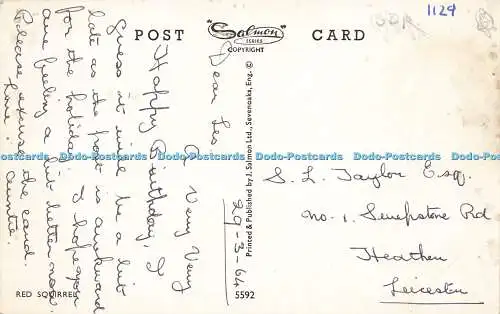 POST CARD
"Salmon"
SERIES
COPYRIGHT
1129
29-3-64
Dear Les,
A Very Very
Happy Birthday, I
Guess it will be a bit
late as the post is awkward
for the holidays. I hope you
are feeling a bit better now.
Please excuse the card.
love Auntie.
Printed & Published by J. Salmon Ltd., Sevenoaks, Eng. ©
S. L. Taylor Esq.
No. 1
Rd
Heather
Leicester
RED SQUIRREL
5592
Dodo-Postcards Dodo-Postcards Dodo-Postcards Dodo-Postcards Dodo-Postcards Dodo-Postcards
www.dodo-postcards.com